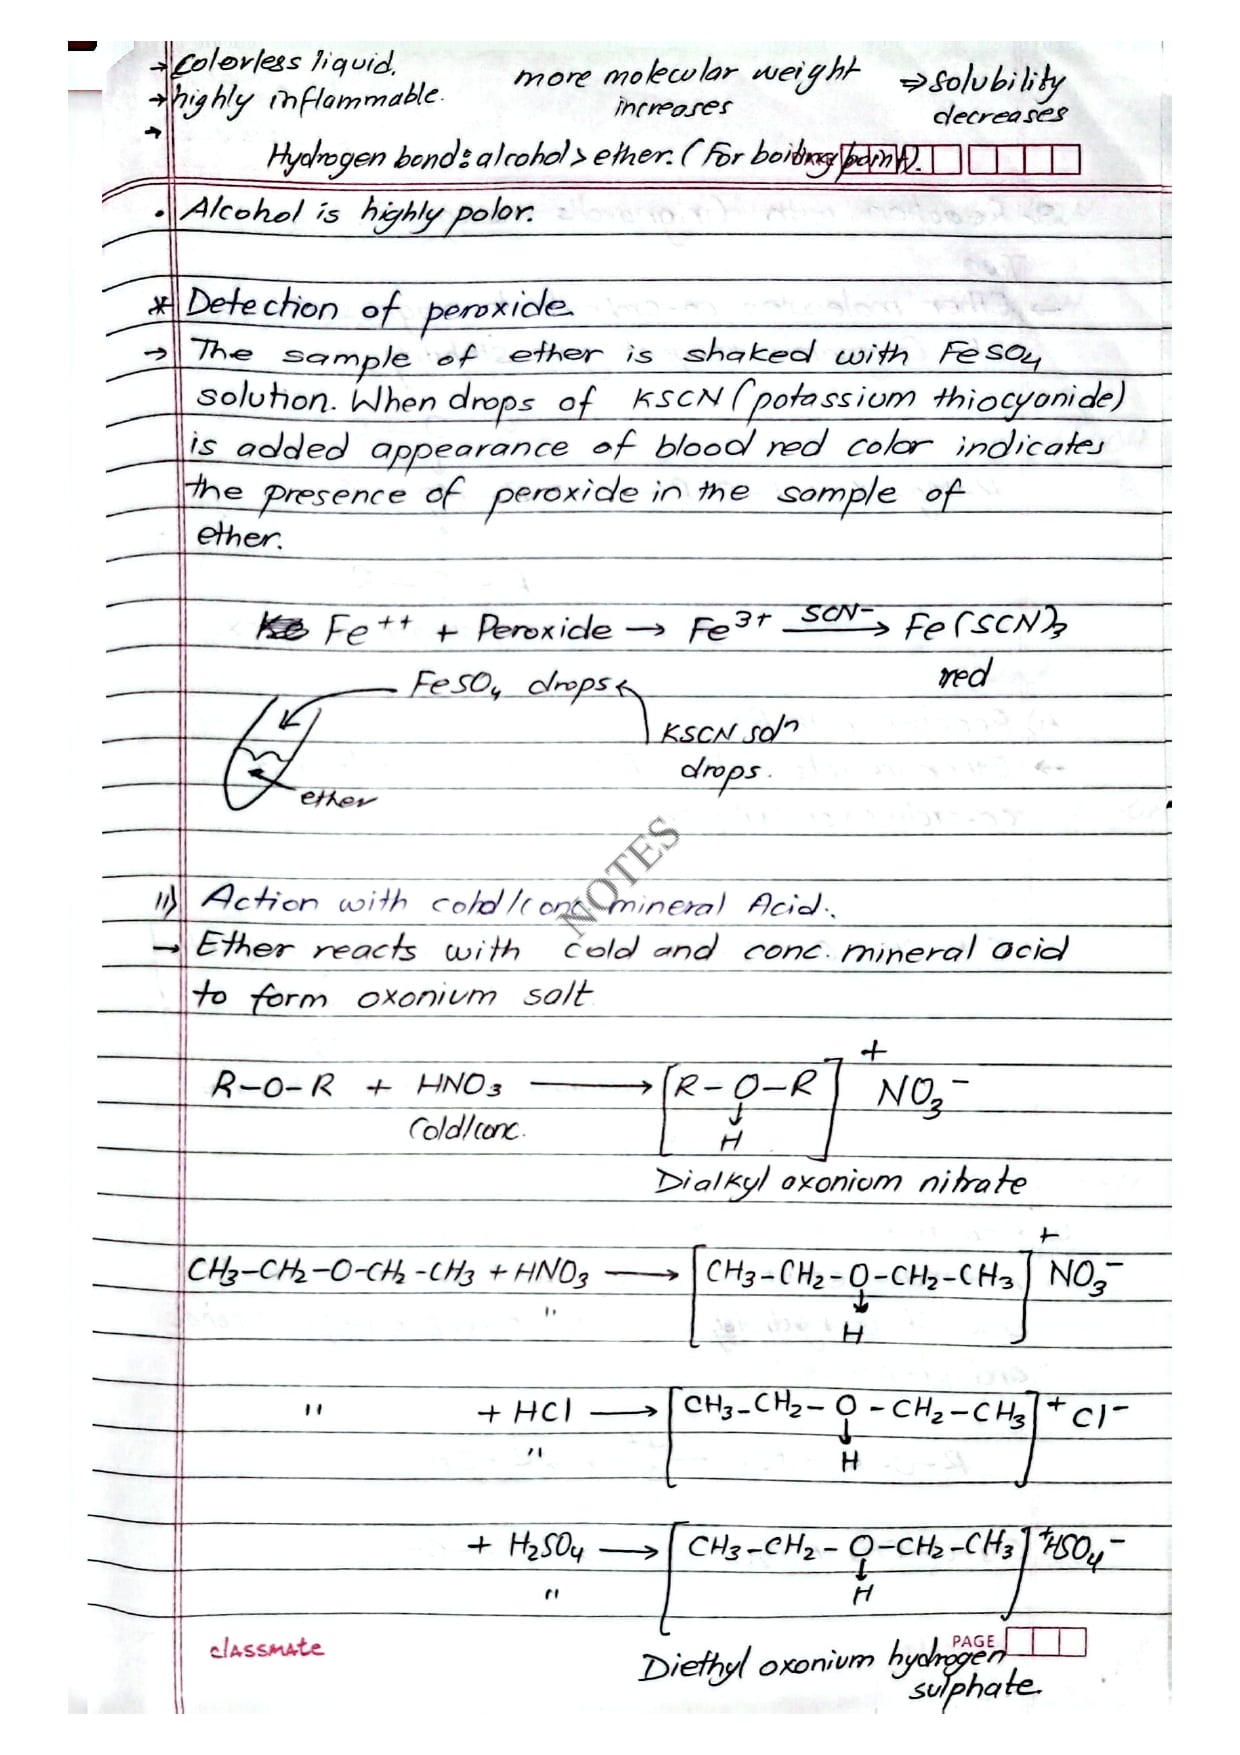 → Colorless liquid.
→ highly inflammable.
→
more molecular weight increases ⇒ solubility decreases
Hydrogen bond: alcohol > ether. (For boiling point).
• Alcohol is highly polar.
* Detection of peroxide.
→ The sample of ether is shaked with FeSO4
solution. When drops of KSCN (potassium thiocyanide)
is added appearance of blood red color indicates
the presence of peroxide in the sample of
ether.
Fe++ + Peroxide → Fe3+ SCN-→ Fe(SCN)3
red
FeSO4 drops
KSCN soln
drops.
ether
NOTES
11) Action with cold/conc. mineral Acid.
→ Ether reacts with cold and conc. mineral acid
to form oxonium salt
R-O-R + HNO3 → [R-O-R]+ NO3-
Cold/conc. H
Dialkyl oxonium nitrate
CH3-CH2-O-CH2-CH3 + HNO3 → [CH3-CH2-O-CH2-CH3]+ NO3-
" H
" + HCl → [CH3-CH2-O-CH2-CH3]+ Cl-
" H
+ H2SO4 → [CH3-CH2-O-CH2-CH3]+ HSO4-
" H
classmate
PAGE
Diethyl oxonium hydrogen
sulphate.